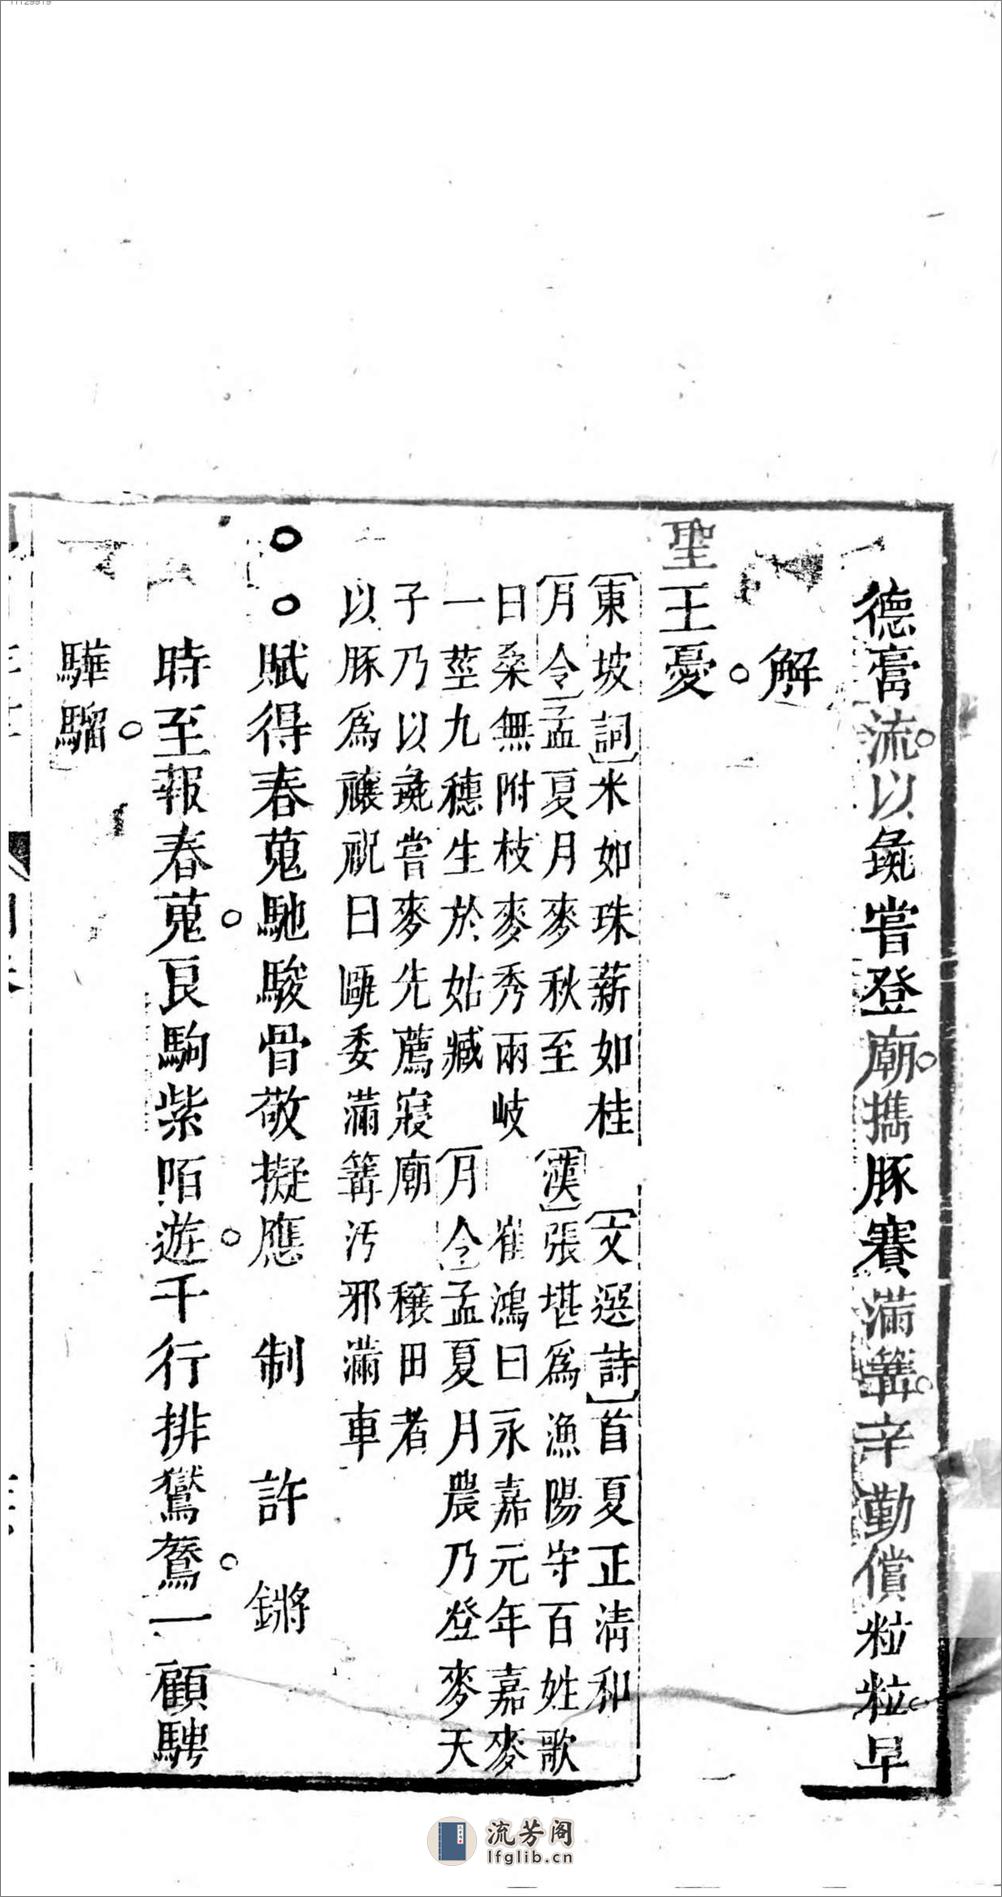 德膏流以彘嘗登廟擕豚賽滿篝辛勤償粒粒早
解
聖王憂
〔東坡詞〕米如珠薪如桂　〔文選詩〕首夏正清和
〔月令〕孟夏月麥秋至　〔漢〕張堪為漁陽守百姓歌
曰桑無附枝麥秀兩岐　崔鴻曰永嘉元年嘉麥
一莖九穗生於姑臧　〔月令〕孟夏月農乃登麥天
子乃以彘嘗麥先薦寢廟　穰田者
以豚為禳祝曰甌委滿篝汚邪滿車
○○賦得春蒐馳駿骨敬擬應　制　許　鏘
時至報春蒐良駒紫陌遊千行排鸑鴛一顧騁
驊騮
流芳阁
lfglib.cn